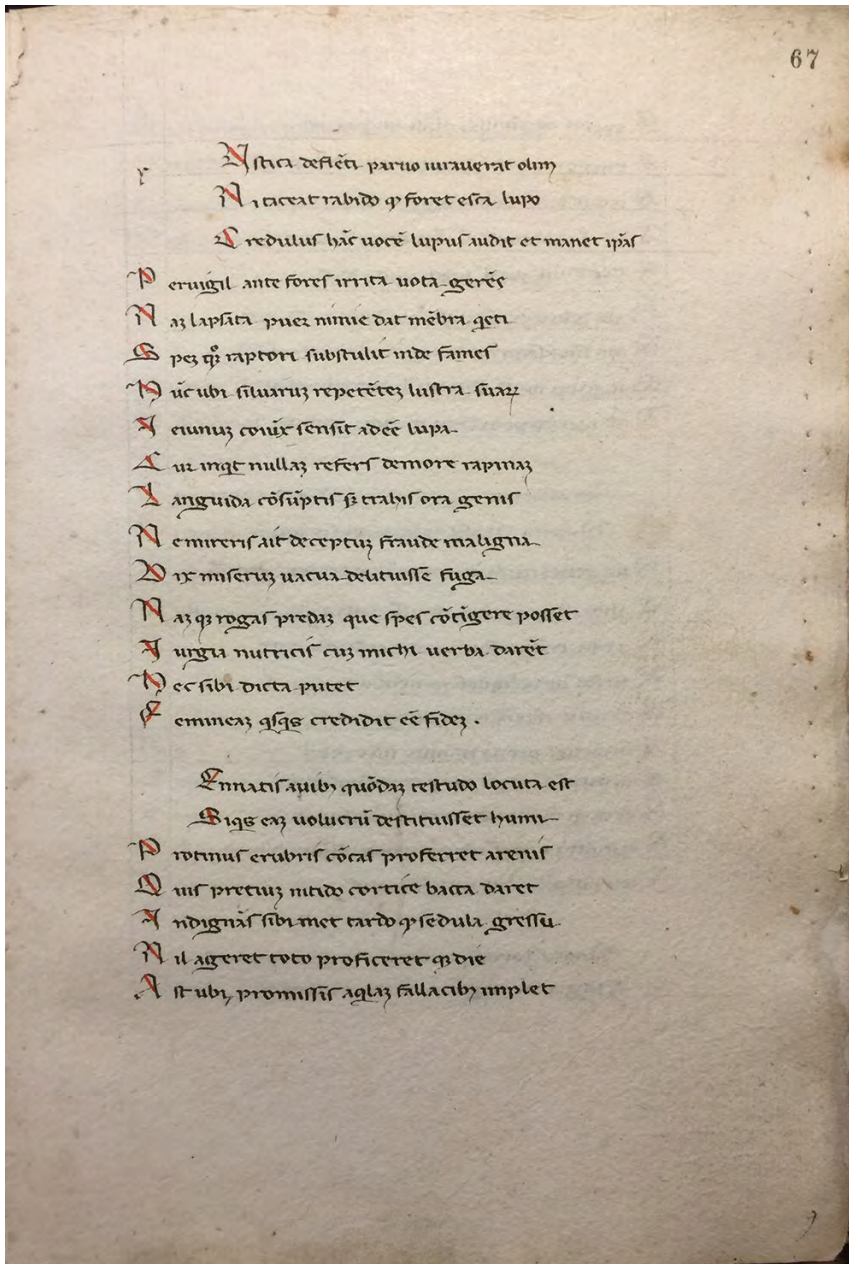 67
r Ustica deflēti paruo iurauerat olim
Ni taceat rabido qꝫ foret esca lupo
Credulus hāc uocē lupus audit et manet ip̄as
Peruigil ante fores irrita uota gerēs
Naꝫ lapsata puer nimie dat mēbra qeti
Speꝫ qꝫ raptori substulit inde fames
Hūc ubi siluaruꝫ repetēteꝫ lustra suaꝝ
Ieiunuꝫ cōiux sensit adeē lupa
Cur inqt nullaꝫ refers demore rapinaꝫ
Languida cōsūptis s; trahis ora genis
Ne mireris ait deceptuꝫ fraude maligna
Vix miseruꝫ uacua delituisse fuga
Naꝫ qꝫ rogas predaꝫ que spes cōtīgere posset
Iurgia nutricis cuꝫ michi uerba darēt
Hec sibi dicta putet
Femineaꝫ qsqs credidit eē fideꝫ .
Ennatis auibꝫ quōdaꝫ testudo locuta est
Siqs eaꝫ uolucrū destituisset humi
Protinus erubris cōcas proferret arenis
Quis pretiuꝫ nitido cortice bacca daret
Indignās sibi met tardo qꝫ sedula gressu
Nil ageret toto proficeret qꝫ die
Ast ubi, promissis aqlaꝫ fallacibꝫ implet